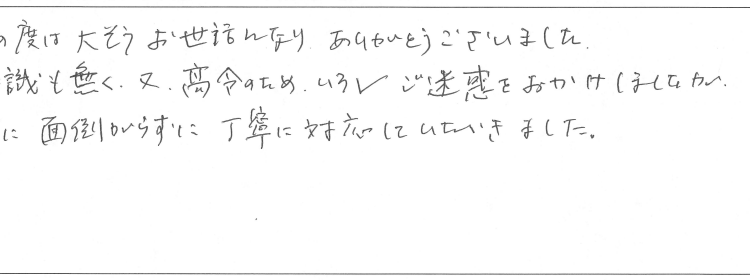 の度は大そうお世話になり ありがとうございました.
識も無く、又、高令のため、いろ〱 ご迷惑をおかけしましたが、
に 面倒がらずに 丁寧に対応していただきました。